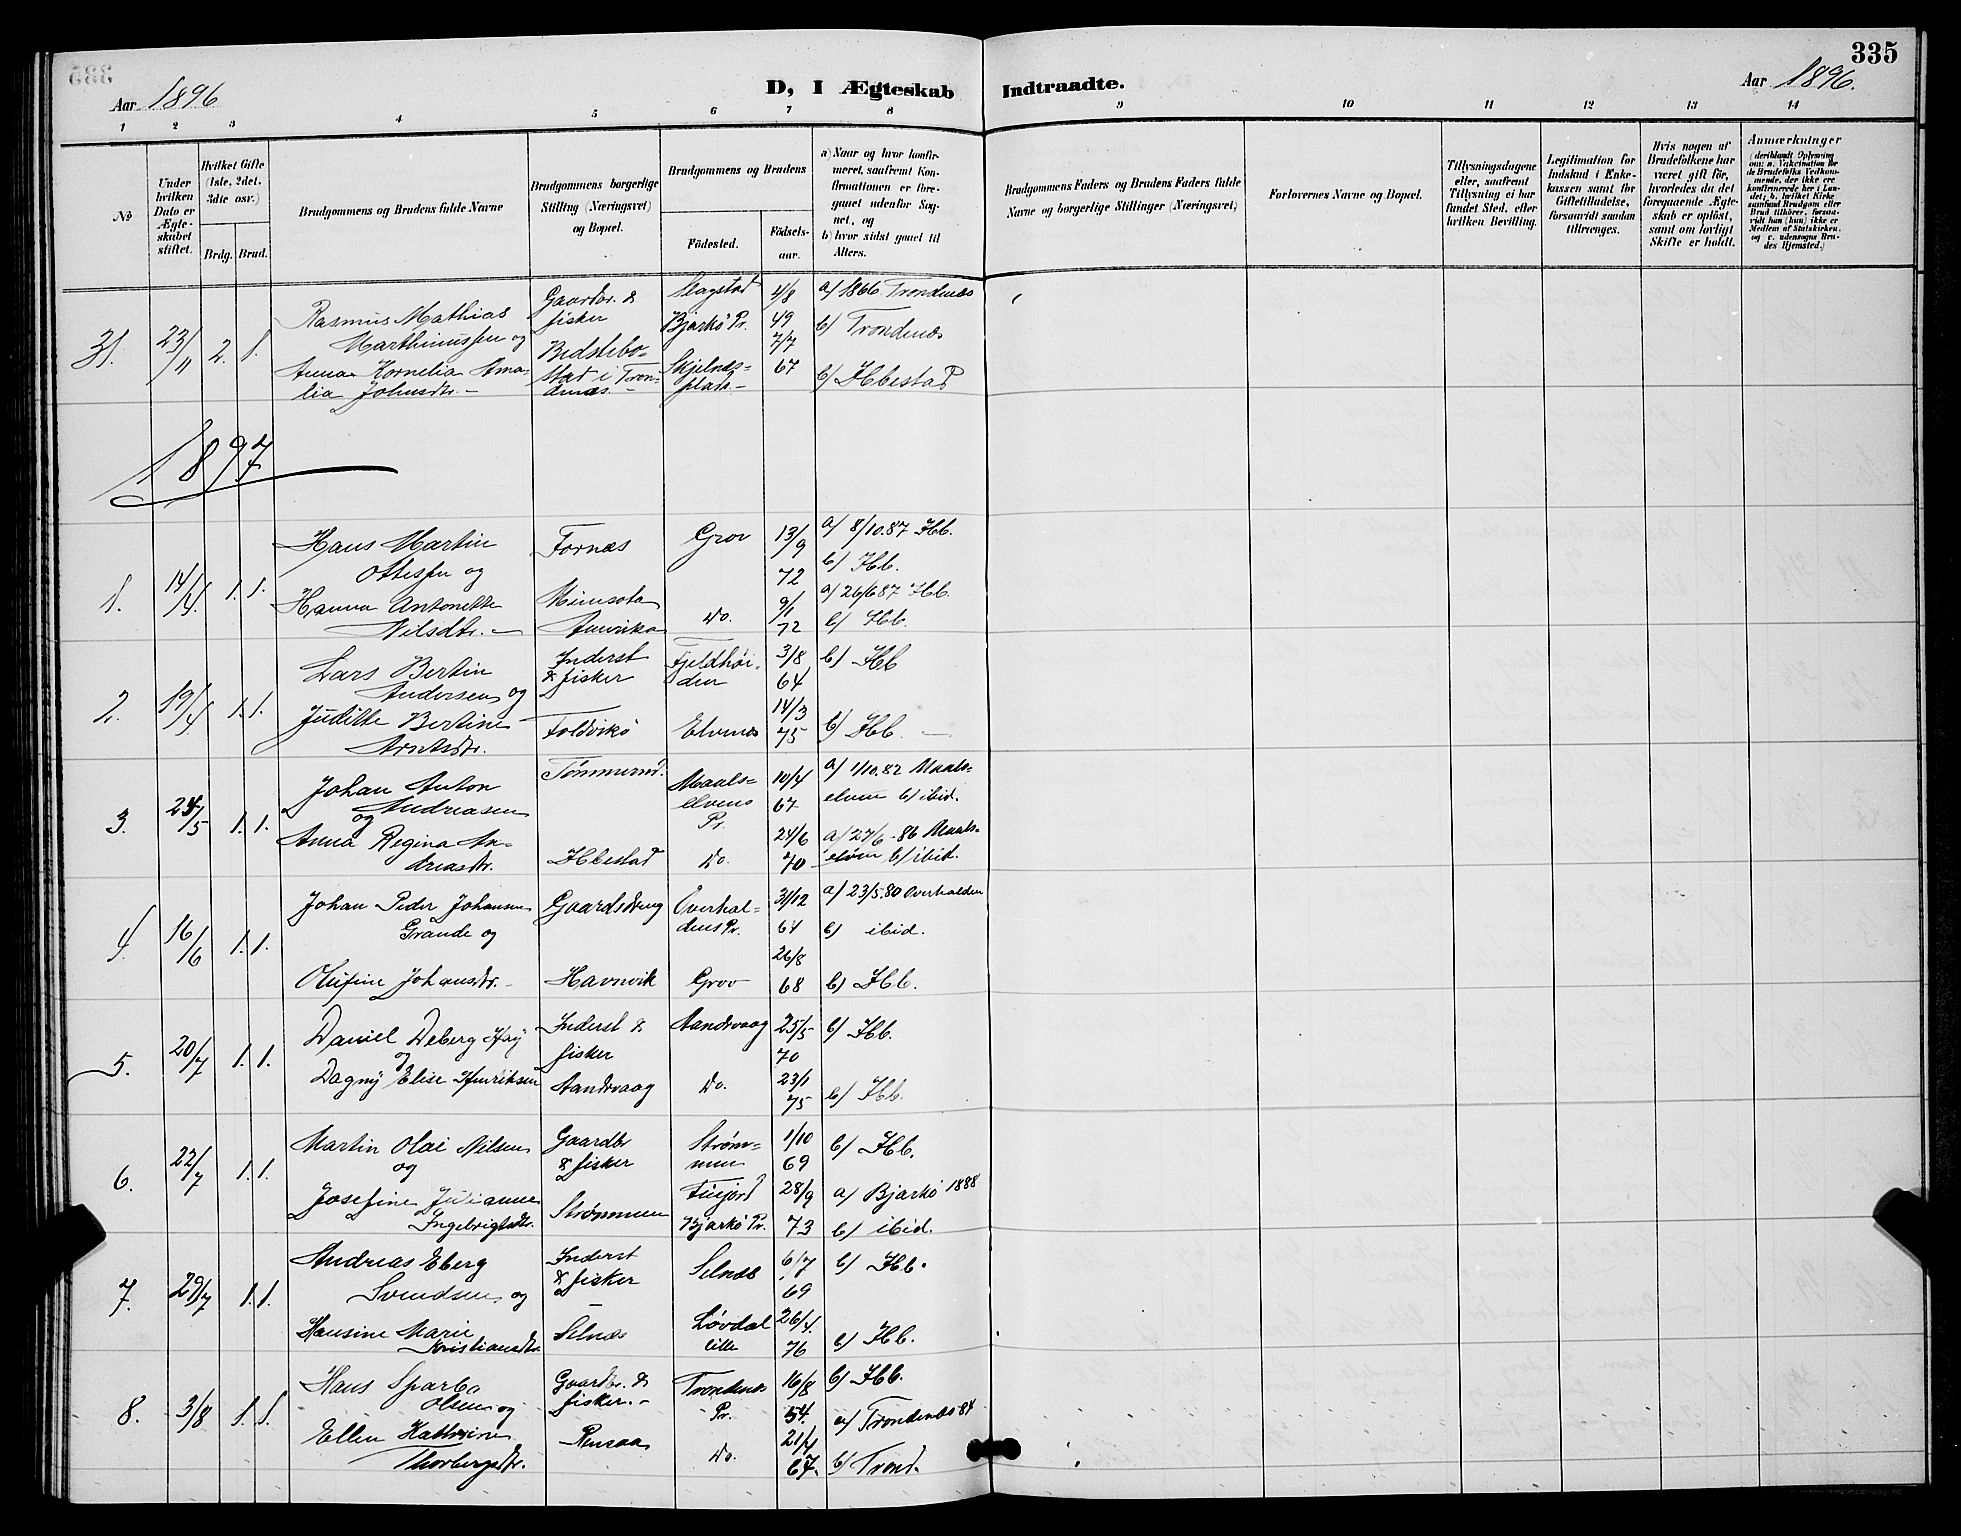 335
Aar 1896
D, I Ægteskab Indtraadte.
Aar 1896.
1 2 3 4 5 6 7 8 9 10 11 12 13 14
№
Under hvilken Dato er Ægteskabet stiftet.
Hvilket Gifte (1ste, 2det, 3die osv.)
Brdg. Brud.
Brudgommens og Brudens fulde Navne
Brudgommens borgerlige Stilling (Næringsvei) og Bopæl.
Brudgommens og Brudens
Födested.
Födsels-aar.
a) Naar og hvor konfirmeret, saafremt Konfirmationen er foregaaet udenfor Sognet, og
b) hvor sidst gaaet til Alters.
Brudgommens Faders og Brudens Faders fulde Navne og borgerlige Stillinger (Næringsvei)
Forlovernes Navne og Bopæl.
Tillysningsdagene eller, saafremt Tillysning ei har fundet Sted, efter hvilken Bevilling.
Legitimation for Indskud i Enkekassen samt for Giftetilladelse, forsaavidt saadan tiltrænges.
Hvis nogen af Brudefolkene har været gift før, hvorledes da det foregaaende Ægteskab er opløst, samt om lovligt Skifte er holdt.
Anmærkninger
(deriblandt Oplysning om: a. Vakcination for de Brudefolks Vedkommende, der ikke ere konfirmerede her i Landet; b. hvilket Kirkesamfund Brudgom eller Brud tilhører, forsaavidt han (hun) ikke er Medlem af Statskirken, og c. udensogns Brudes Hjemsted.)
31. 23/11 2. 1.
Rasmus Mathias
Marthinussen og
Anna Kornelia Ama-
lia Johnsdtr. -
Gaardbr. &
fisker
Bedstebo-
stad i Tron-
denæs. -
Slagstad
Bjarkö Pr.
Skjelnæs-
plads -
4/8
49
7/7
67
a) 1866 Trondenæs
b) Trondenæs
b) Ibbestad
1897
1. 14/4. 1. 1.
Hans Martin
Ottesen og
Hanna Antonette
Nilsdtr. -
Fornæs
Minnsota
Amerika
Grov
Do.
13/9
72
9/1
72
a) 8/10.87 Ibb.
b) Ibb.
a) 26/6 87 Ibb.
b) Ibb.
2. 19/4 1. 1.
Lars Bertin
Andersen og
Judithe Bertine
Arntsdtr.
Inderst
& fisker
Foldvikö
Fjeldhöi-
den
Elvenæs
3/8
64
14/3
75
b) Ibb
b) Ibb. -
3. 24/5 1. 1.
Johan Anton
Andreasen
og
Anna Regina An-
dreasdtr.
Tömmermd.
Ibbestad
Maals-
elvens
Pr.
Do.
10/4
67
24/6
70
a) 1/10.82 Maals-
elven b) ibid.
a) 27/6 - 86 Maals-
elven b) ibid.
4. 16/6 1. 1.
Johan Peder Johansen
Grande og
Olufine Johansdtr. -
Gaardsdreng
Havnvik
Overhal-
dens Pr.
Grov
31/12
64
26/8
68
a) 23/5.80 Overhalden
b) ibid.
b) Ibb.
5. 20/7 1. 1.
Daniel Deberg Hay
og
Dagny Elise Henriksen
Inderst &
fisker
Aandsvaag
Aandsvaag
Do.
25/5
70
23/1
75
b) Ibb.
b) Ibb.
6. 22/7 1. 1.
Martin Olai Nilsen
og
Josefine Julianne
Ingebrigtsdtr.
Gaardbr
& fisker
Strømmen
Strøm-
men
Finjord
Bjarkö Pr.
1/10
69
28/9
73
b) Ibb.
a) Bjarkö 1888
b) ibid.
7. 29/7 1. 1.
Andreas Eberg
Svendsen og
Hansine Marie
Kristiansdtr.
Inderst
& fisker
Selnæs
Selnæs
Løvdal
lille
6/7
69
26/4.
76
b) Ibb.
b) Ibb.
8. 3/8 1. 1.
Hans Sparbo
Olsen og
Ellen Kathrine
Thorbergsdtr.
Gaardbr. &
fisker. -
Rensaa
Trondenæs
Pr.
Do.
16/8
54.
21/4
67.
b) Ibb.
a) Trondenæs 84
b) Trond.